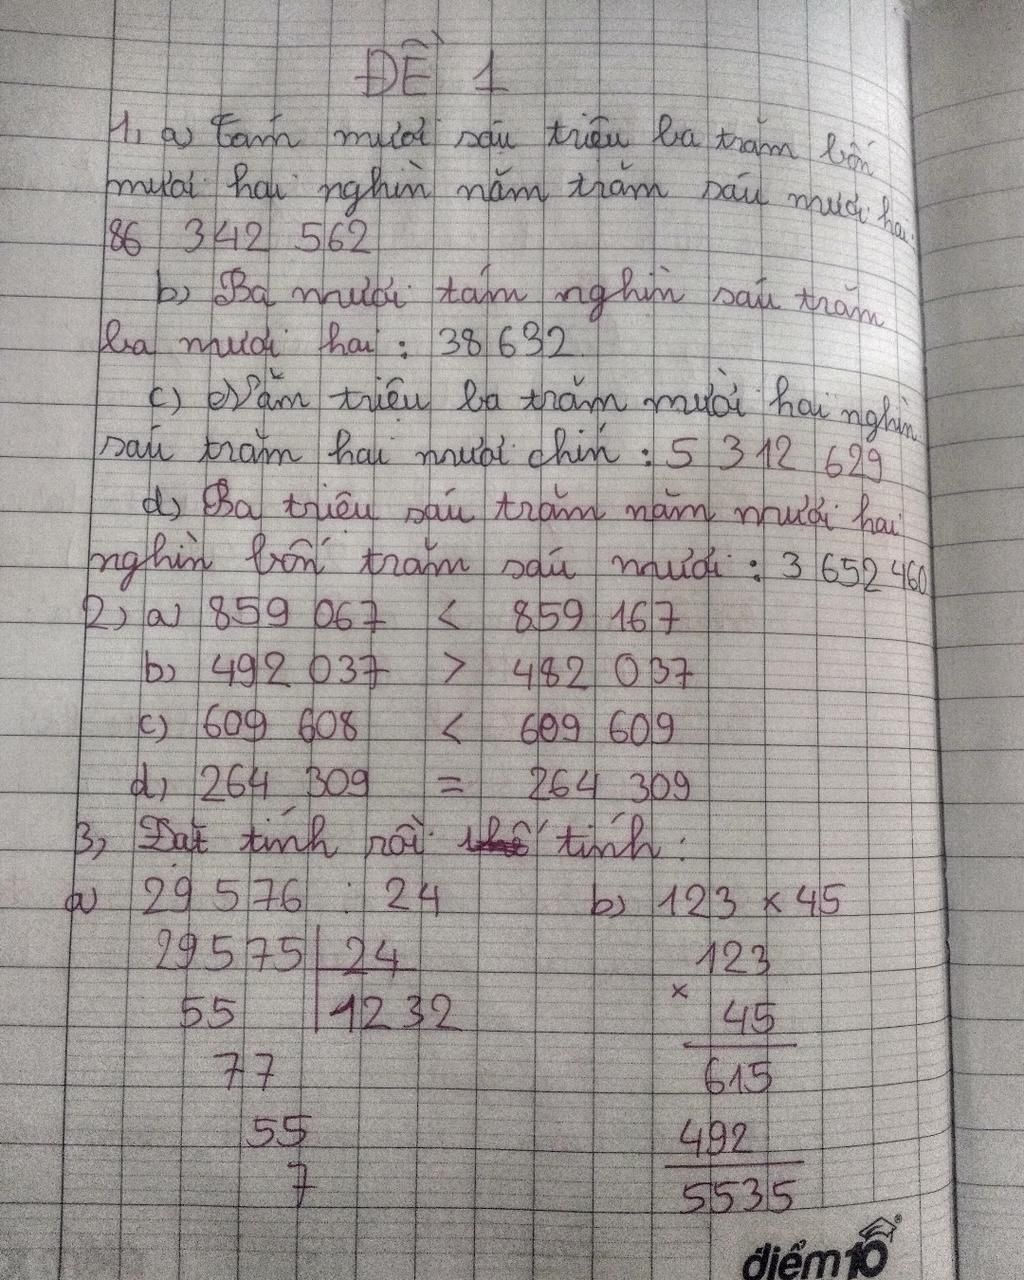 ĐỀ 1
1, a) Tám mươi sáu triệu ba trăm bốn
mươi hai nghìn năm trăm sáu mươi hai.
86 342 562
b) Ba mươi tám nghìn sáu trăm
ba mươi hai : 38 632
c) Năm triệu ba trăm mười hai nghìn
sáu trăm hai mươi chín : 5 312 629
d) Ba triệu sáu trăm năm mươi hai
nghìn bốn trăm sáu mươi : 3 652 460
2) a) 859 067 < 859 167
b) 492 037 > 482 037
c) 609 608 < 609 609
d) 264 309 = 264 309
3, Đặt tính rồi tính :
a) 29 576 : 24 b) 123 × 45
29575 24 123
55 1232 × 45
77 615
55 492
7 5535
điểm10